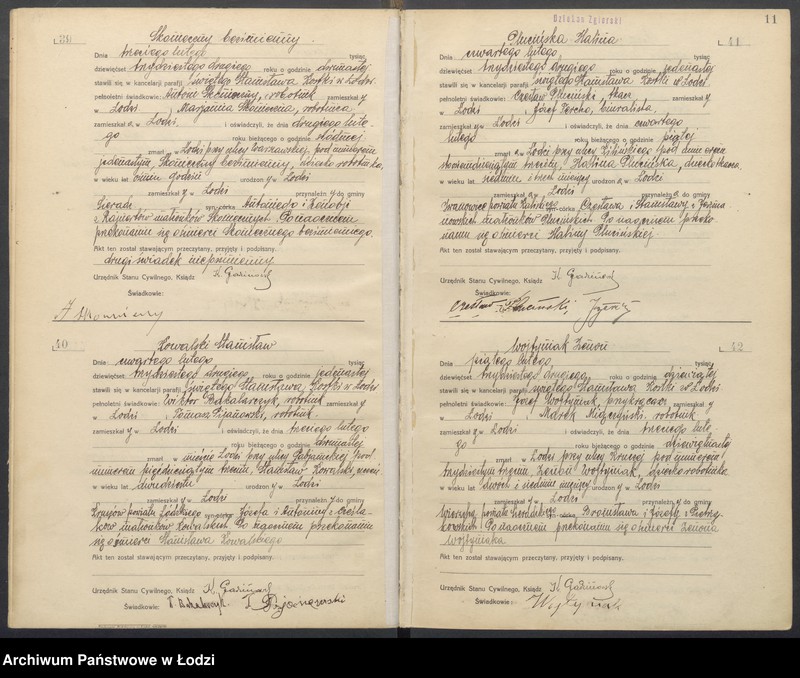 39
Skomoczny bezimienny.
Dnia trzeciego lutego tysiąc
dziewięćset trzydziestego drugiego roku o godzinie dwunastej
stawili się w kancelarji parafji świętego Stanisława Kostki w Łodzi
pełnoletni świadkowie: Antoni robotnik zamieszkał y
w Łodzi i Marjanna robotnica
zamieszkał a w Łodzi i oświadczyli, że dnia drugiego lute-
go roku bieżącego o godzinie
zmarł w Łodzi przy ulicy pod numerem
jedenastym, bezimienny, dziecko robotnika,
w wieku lat osiem godzin urodzon y w Łodzi
zamieszkał y w Łodzi przynależn y do gminy
Sieradz syn-córka Antoniego i
z małżonków Po naocznem
przekonaniu się o śmierci bezimiennego.
Akt ten został stawającym przeczytany, przyjęty i podpisany.
drugi świadek niepiśmienny
Urzędnik Stanu Cywilnego, Ksiądz
Świadkowie:
40
Kowalski Stanisław
Dnia czwartego lutego tysiąc
dziewięćset trzydziestego drugiego roku o godzinie jedenastej
stawili się w kancelarji parafji świętego Stanisława Kostki w Łodzi
pełnoletni świadkowie: Wiktor Bakalarczyk, robotnik zamieszkał y
w Łodzi i Tomasz robotnik
zamieszkał y w Łodzi i oświadczyli, że dnia trzeciego lutego
roku bieżącego o godzinie dwunastej
zmarł w mieście Łodzi przy ulicy Pabjanickiej pod
numerem pięćdziesiątym trzecim, Stanisław Kowalski, uczeń
w wieku lat dwadzieścia urodzon y w Łodzi
zamieszkał y w Łodzi przynależn y do gminy
powiatu Łódzkiego syn-córka Józefa i Antoniny z
małżonków Kowalskich. Po naocznem przekonaniu
się o śmierci Stanisława Kowalskiego
Akt ten został stawającym przeczytany, przyjęty i podpisany.
Urzędnik Stanu Cywilnego, Ksiądz
Świadkowie:
Działas Zgierski
11
41
Plucińska Halina
Dnia czwartego lutego, tysiąc
dziewięćset trzydziestego drugiego roku o godzinie jedenastej
stawili się w kancelarji parafji świętego Stanisława Kostki w Łodzi
pełnoletni świadkowie: Czesław Pluciński, tkacz zamieszkał y
w Łodzi i Józef biuralista
zamieszkał y w Łodzi i oświadczyli, że dnia czwartego
lutego roku bieżącego o godzinie piątej
zmarł a w Łodzi przy ulicy Kilińskiego pod numerem
Halina Plucińska, dziecko tkacza
w wieku lat siedem i trzech miesięcy urodzon a w Łodzi
zamieszkał a w Łodzi przynależn a do gminy
powiatu syn-córka Czesława i Stanisławy z
małżonków Plucińskich Po naocznem przeko-
naniu się o śmierci Haliny Plucińskiej
Akt ten został stawającym przeczytany, przyjęty i podpisany.
Urzędnik Stanu Cywilnego, Ksiądz
Świadkowie:
Czesław Pluciński
42
Wojtyniak Zenon
Dnia piątego lutego, tysiąc
dziewięćset trzydziestego drugiego, roku o godzinie dziewiątej
stawili się w kancelarji parafji świętego Stanisława Kostki w Łodzi
pełnoletni świadkowie: Józef Wojtyniak, zamieszkał y
w Łodzi i Marek robotnik
zamieszkał y w Łodzi i oświadczyli, że dnia trzeciego lute-
go roku bieżącego o godzinie dziewiętnastej
zmarł w Łodzi przy ulicy Kruczej pod numerem
trzydziestym trzecim Zenon Wojtyniak, dziecko robotnika
w wieku lat dwóch i siedmiu miesięcy urodzon y w Łodzi
zamieszkał y w Łodzi przynależn y do gminy
powiatu Sieradzkiego syn-córka Bronisława i Józefy z
Po naocznem przekonaniu się o śmierci Zenona
Wojtyniaka
Akt ten został stawającym przeczytany, przyjęty i podpisany.
Urzędnik Stanu Cywilnego, Ksiądz
Świadkowie: Wojtyniak
Archiwum Państwowe w Łodzi